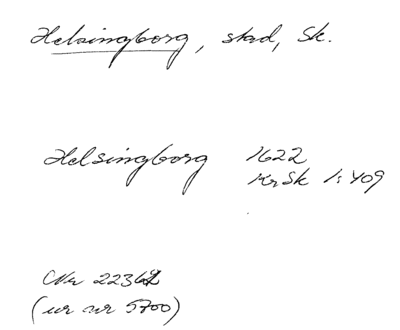 Helsingborg, stad, Sk.
Helsingborg 1622
KrSk 1:409
Nr 22362
(ur nr 5700)